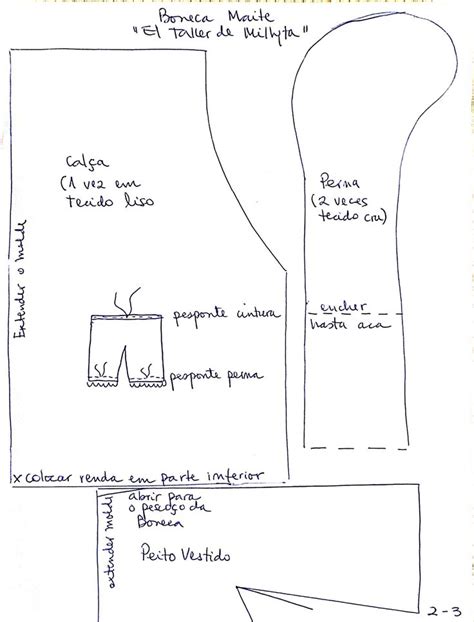 Boneca Maite
"El Taller de Millyta"
Calça
(1 vez em
tecido liso
Extender o molde
pesponte cintura
pesponte perna
x colocar renda em parte inferior
Perna
(2 veces
tecido cru)
encher
hasta aca
extender molde
abrir para
o pescoço da
Boneca
Peito Vestido
2-3